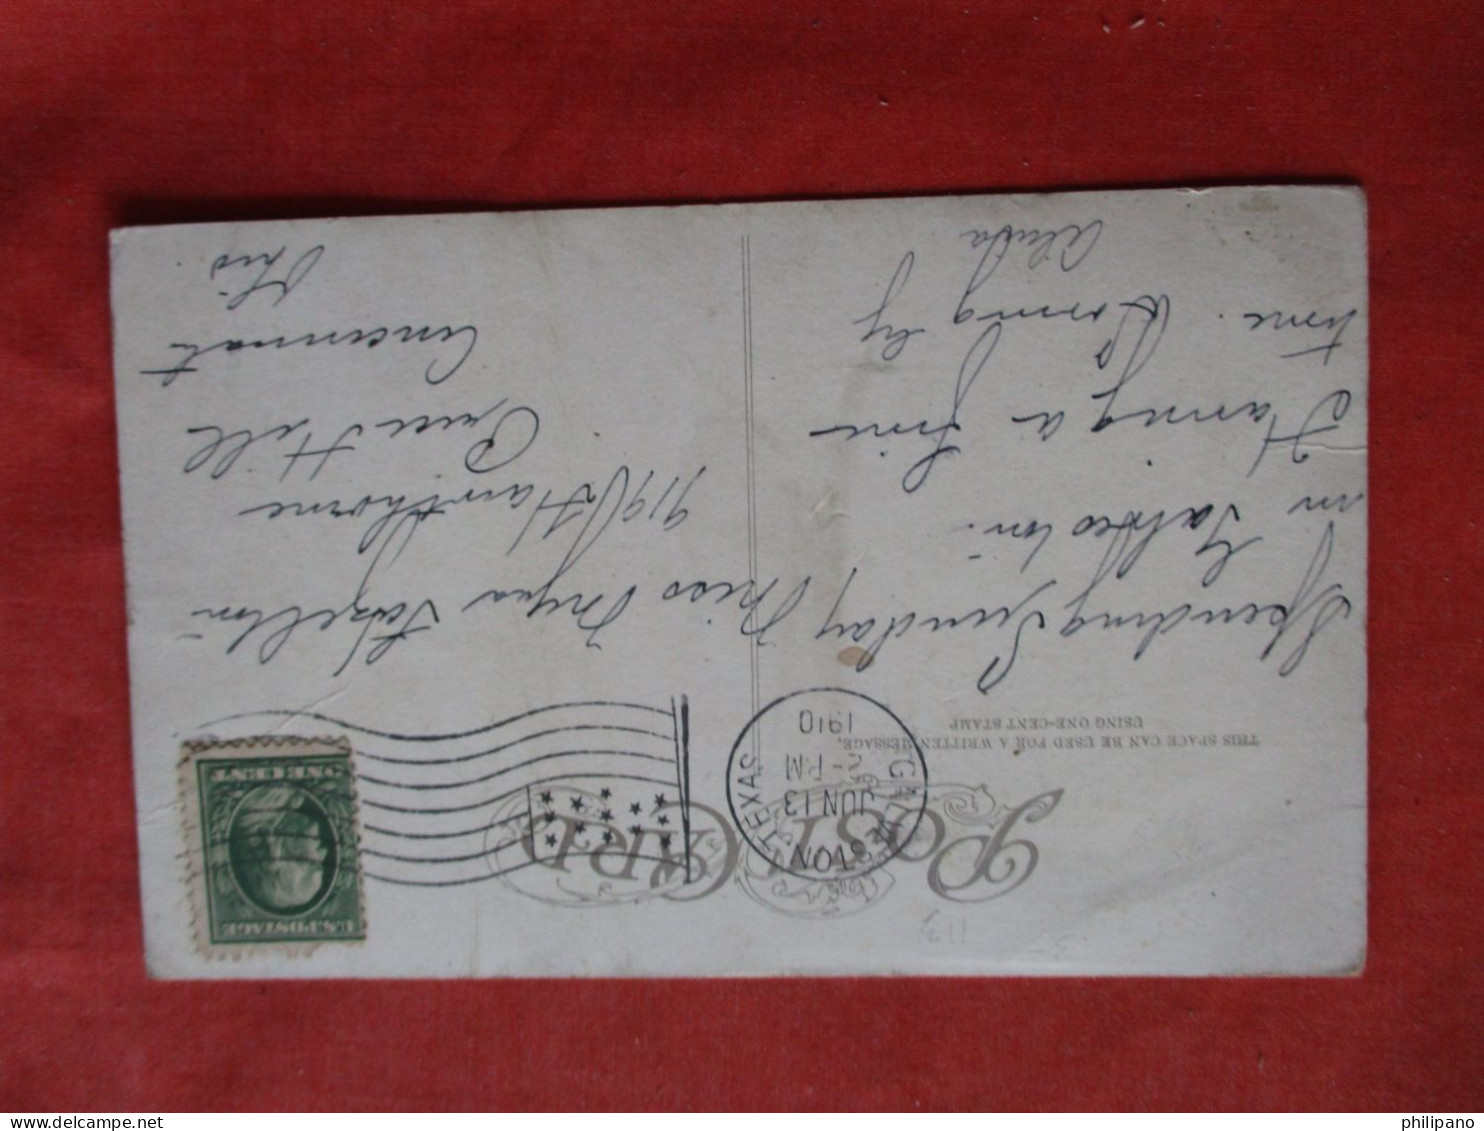 POST CARD
THIS SPACE CAN BE USED FOR A WRITTEN MESSAGE,
USING ONE-CENT STAMP
GALVESTON TEXAS
JUN 13
-PM
1910
U.S. POSTAGE
ONE CENT
Spending Sunday
in Galveston.
Having a fine
time.
Miss
919 Hawthorne
Price Hill
Cincinnati
Ohio.
philipano